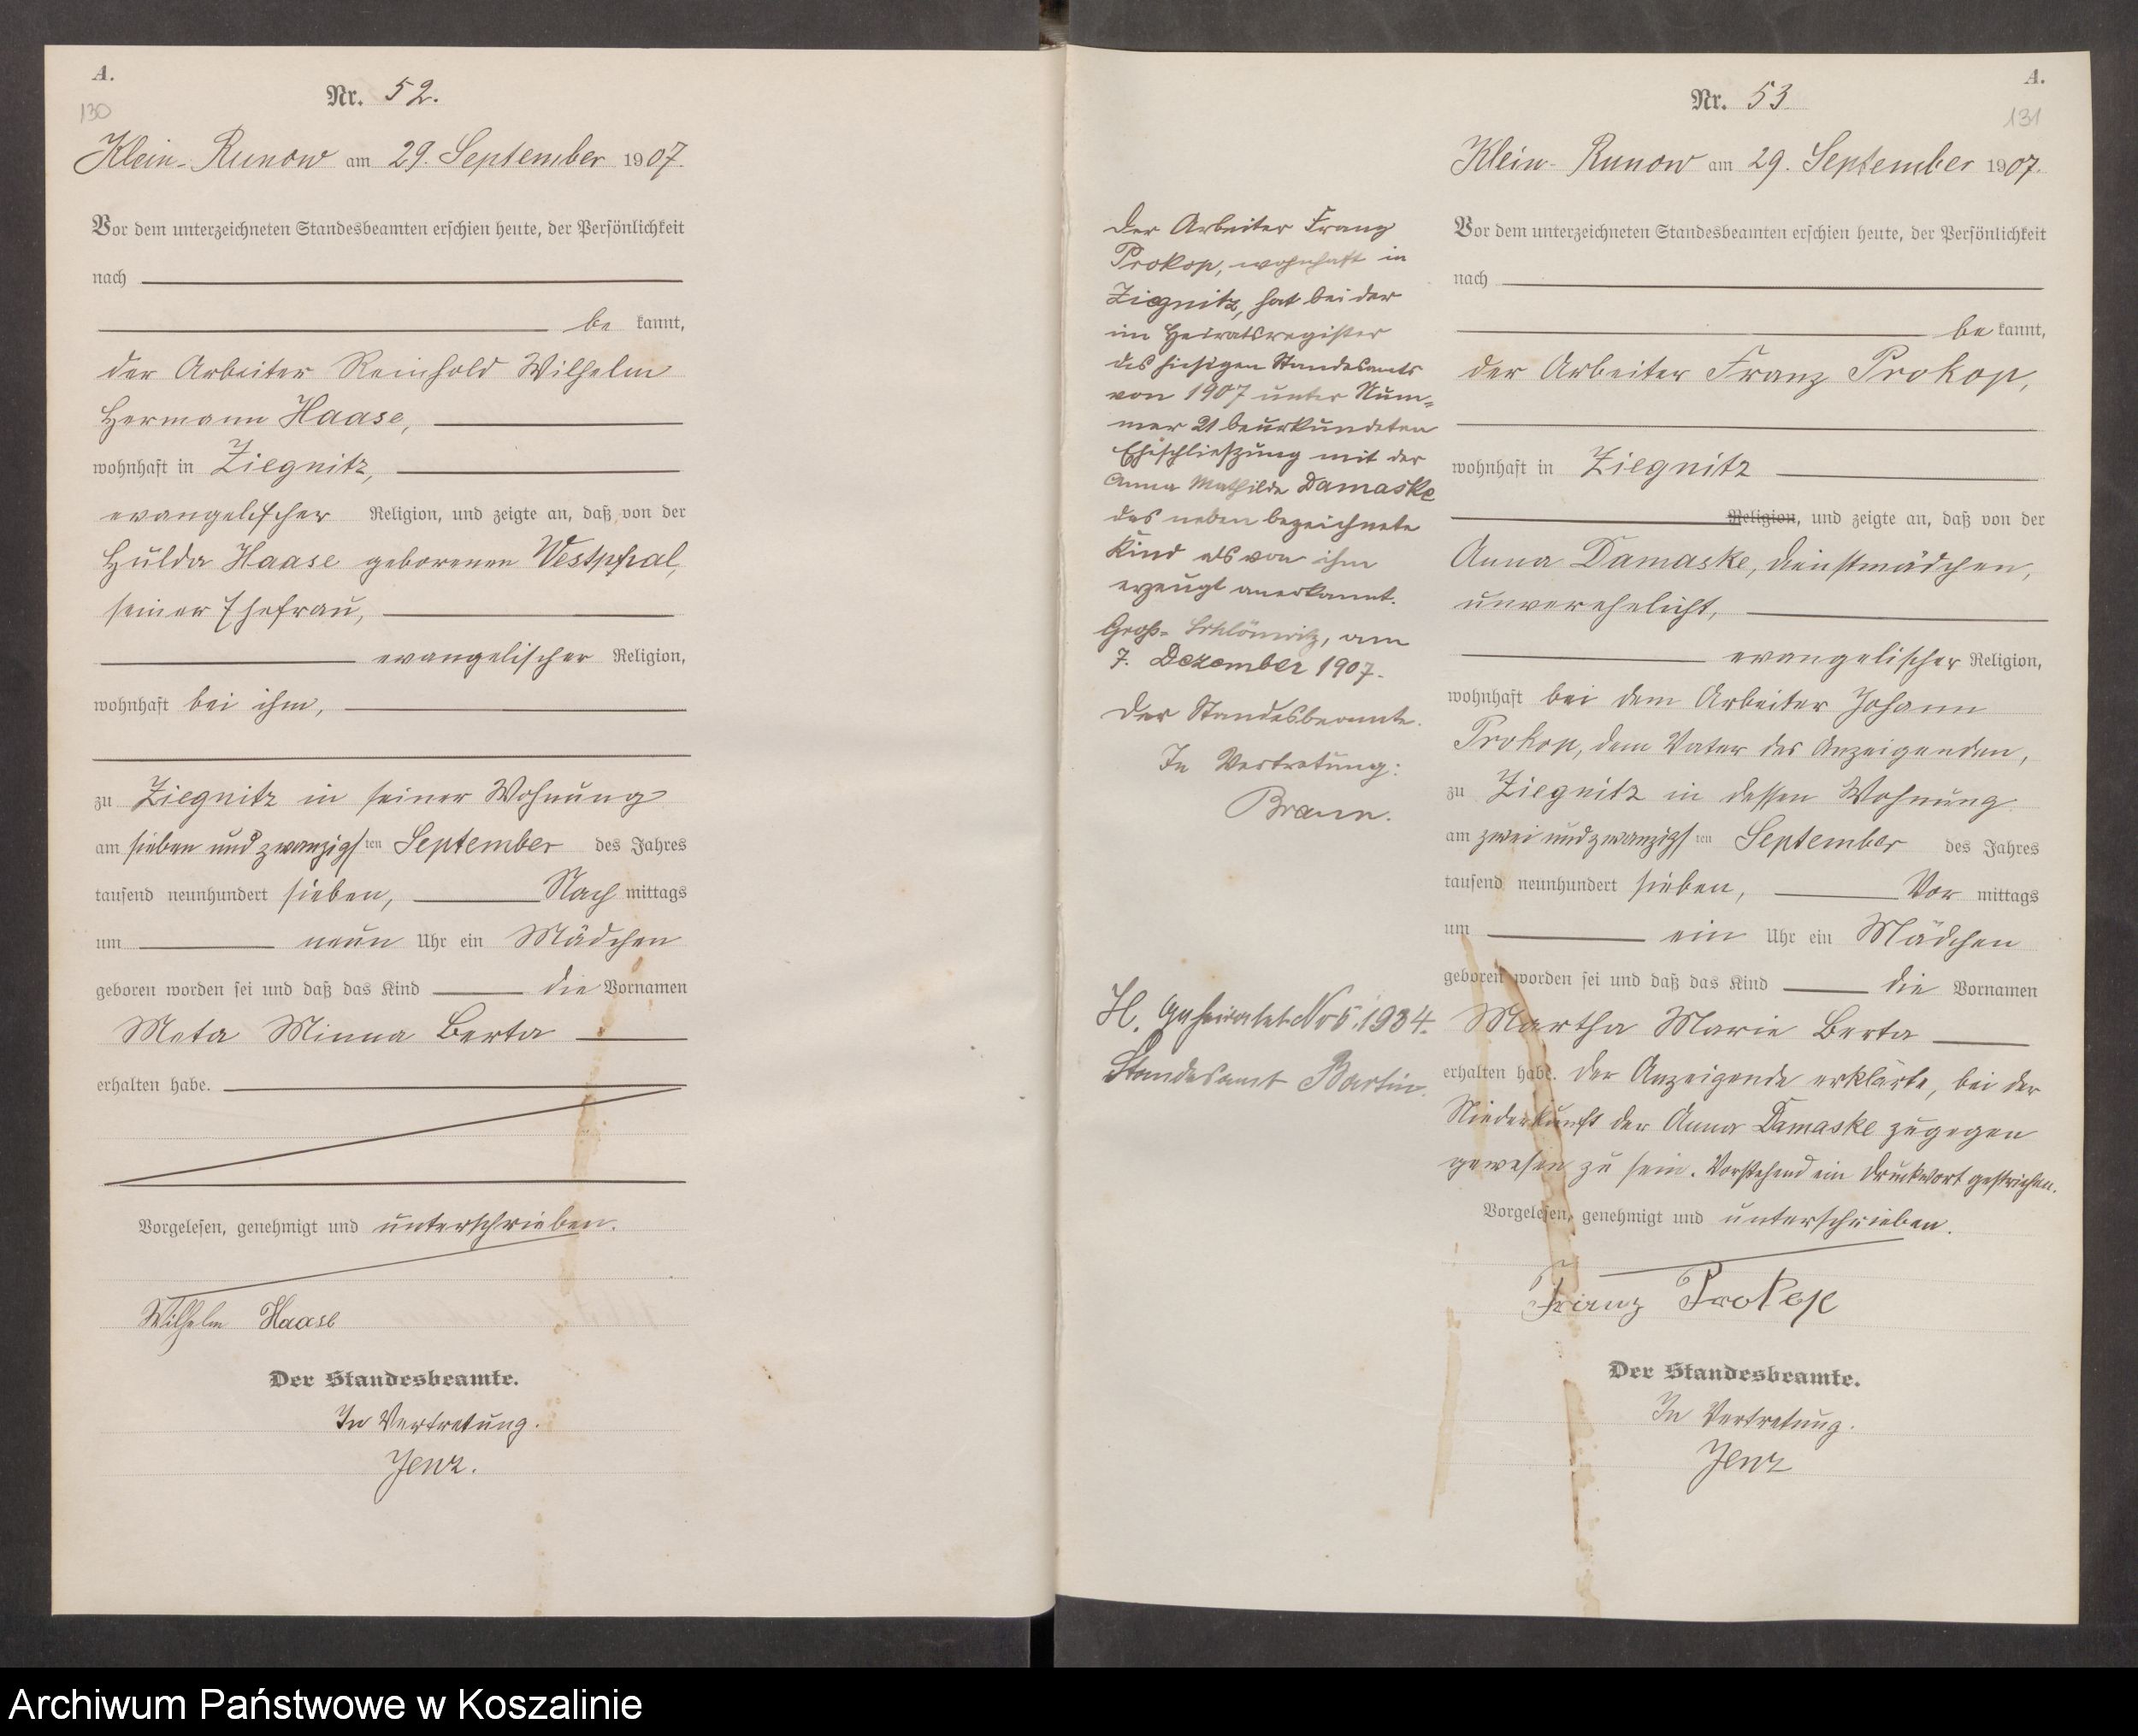 A.
130
Nr. 52.
Klein-Runow am 29. September 1907.
Vor dem unterzeichneten Standesbeamten erschien heute, der Persönlichkeit
nach
be kannt,
der Arbeiter Reinhold Wilhelm
Hermann Haase,
wohnhaft in Ziegnitz,
evangelischer Religion, und zeigte an, daß von der
Hulda Haase geborenen Westphal,
seiner Ehefrau,
evangelischer Religion,
wohnhaft bei ihm,
zu Ziegnitz in seiner Wohnung
am sieben und zwanzigsten September des Jahres
tausend neunhundert sieben, Nach mittags
um neun Uhr ein Mädchen
geboren worden sei und daß das Kind die Vornamen
Meta Minna Berta
erhalten habe.
Vorgelesen, genehmigt und unterschrieben.
Wilhelm Haase
Der Standesbeamte.
In Vertretung.
Jenz.
A.
131
Nr. 53
Klein-Runow am 29. September 1907.
Vor dem unterzeichneten Standesbeamten erschien heute, der Persönlichkeit
nach
be kannt,
der Arbeiter Franz Prokop,
wohnhaft in Ziegnitz
Religion, und zeigte an, daß von der
Anna Damaske, Dienstmädchen,
unverehelicht,
evangelischer Religion,
wohnhaft bei dem Arbeiter Johann
Prokop, dem Vater des Anzeigenden,
zu Ziegnitz in dessen Wohnung
am zwei und zwanzigsten September des Jahres
tausend neunhundert sieben, Vor mittags
um ein Uhr ein Mädchen
geboren worden sei und daß das Kind die Vornamen
Martha Marie Berta
erhalten habe. Der Anzeigende erklärte, bei der
Niederkunft der Anna Damaske zugegen
gewesen zu sein. Vorstehend ein Druckwort gestrichen.
Vorgelesen, genehmigt und unterschrieben.
Franz Prokop
Der Standesbeamte.
In Vertretung.
Jenz
Der Arbeiter Franz
Prokop, wohnhaft in
Ziegnitz, hat bei der
im Heiratsregister
des hiesigen Standesamts
von 1907 unter Num-
mer 21 beurkundeten
Eheschließung mit der
Anna Mathilde Damaske
das neben bezeichnete
Kind als von ihm
erzeugt anerkannt.
Groß-Schlönwitz, am
7. Dezember 1907.
Der Standesbeamte.
In Vertretung:
Braun.
H. Geheiratet Nr 6. 1934.
Standesamt Bartin.
Archiwum Państwowe w Koszalinie